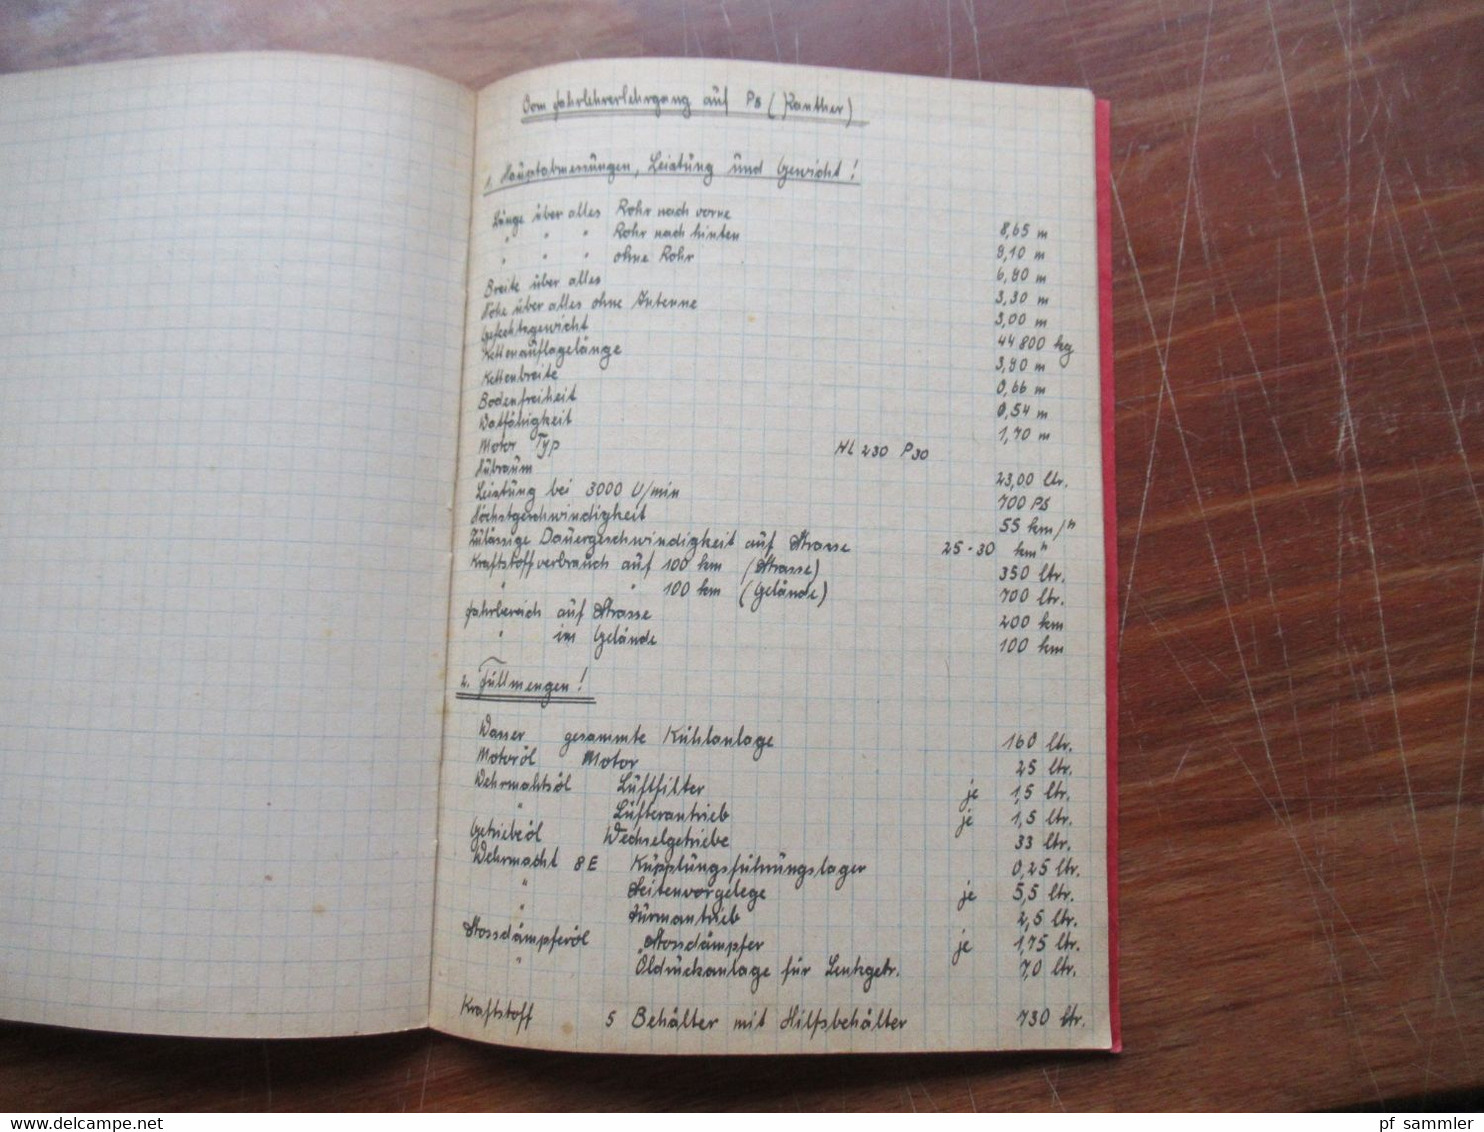 Vom Fahrlehrerlehrgang auf Ps (Panther)
1. Hauptabmessungen, Leistung und Gewicht!
Länge über alles Rohr nach vorne 8,65 m
" " " Rohr nach hinten 9,10 m
" " " ohne Rohr 6,90 m
Breite über alles 3,30 m
Höhe über alles ohne Antenne 3,00 m
Gefechtsgewicht 44 800 kg
Kettenauflagelänge 3,90 m
Kettenbreite 0,66 m
Bodenfreiheit 0,54 m
Watfähigkeit 1,70 m
Motor Typ HL 230 P30
Hubraum 23,00 ltr.
Leistung bei 3000 U/min 700 PS
Höchstgeschwindigkeit 55 km/"
Zulässige Dauergeschwindigkeit auf Strasse 25-30 km"
Kraftstoffverbrauch auf 100 km (Strasse) 350 ltr.
" " 100 km (Gelände) 700 ltr.
Fahrbereich auf Strasse 200 km
" im Gelände 100 km
2. Füllmengen!
Wasser gesammte Kühlanlage 160 ltr.
Motoröl Motor 25 ltr.
Wehrmahtsöl Luftfilter je 1,5 ltr.
" Lüfterantrieb je 1,5 ltr.
Getriebeöl Wechselgetriebe 33 ltr.
Wehrmacht 8E Kupplungsführungslager 0,25 ltr.
" Seitenvorgelege je 5,5 ltr.
" Turmantrieb 2,5 ltr.
Stossdämpferöl Stossdämpfer je 1,75 ltr.
" Öldruckanlage für Lenkgetr. 7,0 ltr.
Kraftstoff 5 Behälter mit Hilfsbehälter 730 ltr.
www.delcampe.net
pf_sammler